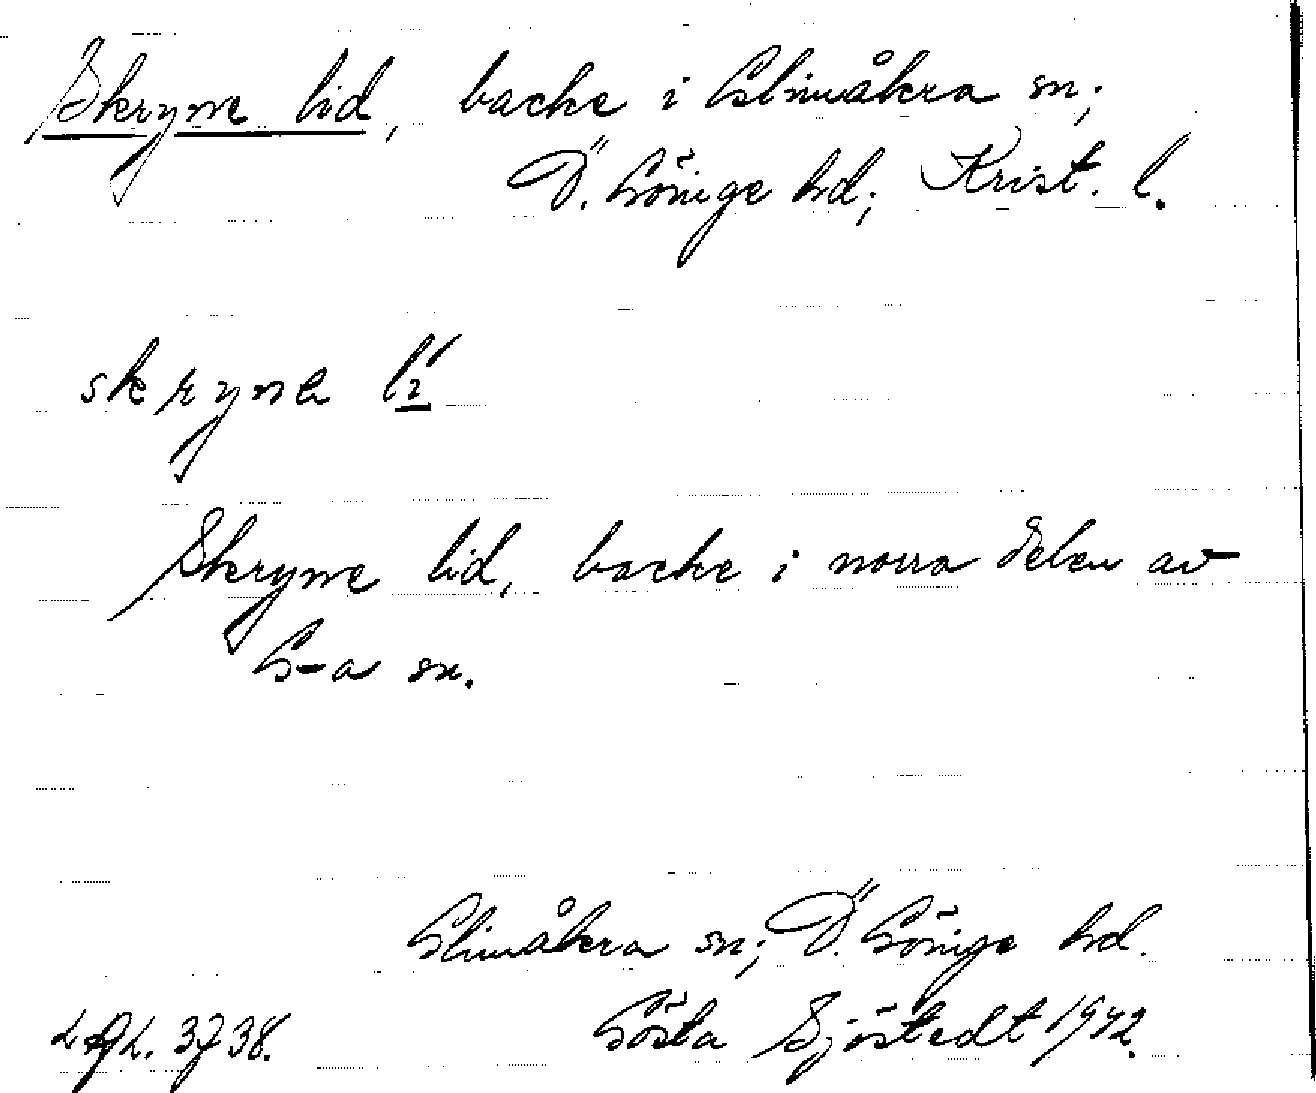 Skryme lid, backe i Glimåkra sn;
Ö. Göinge hd; Krist. l.
skrymа lí
Skryme lid, backe i norra delen av
G-a sn.
Glimåkra sn; Ö. Göinge hd.
Gösta Sjöstedt 1942.
3738.